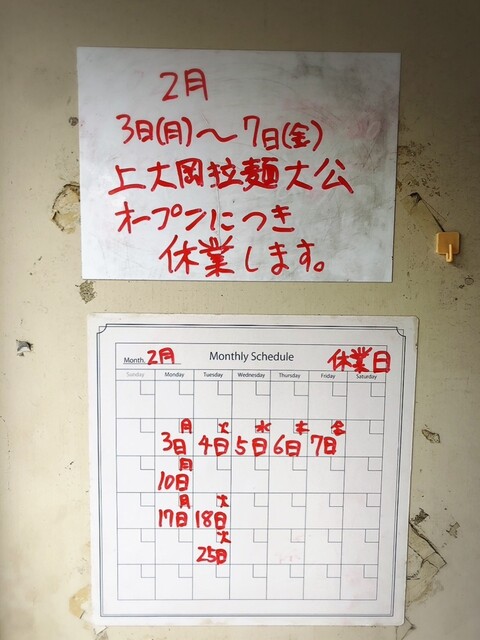 2月
3日(月)〜7日(金)
上大岡拉麺大公
オープンにつき
休業します。
Month. 2月 Monthly Schedule 休業日
Sunday Monday Tuesday Wednesday Thursday Friday Saturday
月 火 水 木 金
3日 4日 5日 6日 7日
月
10日
月 火
17日 18日
火
25日